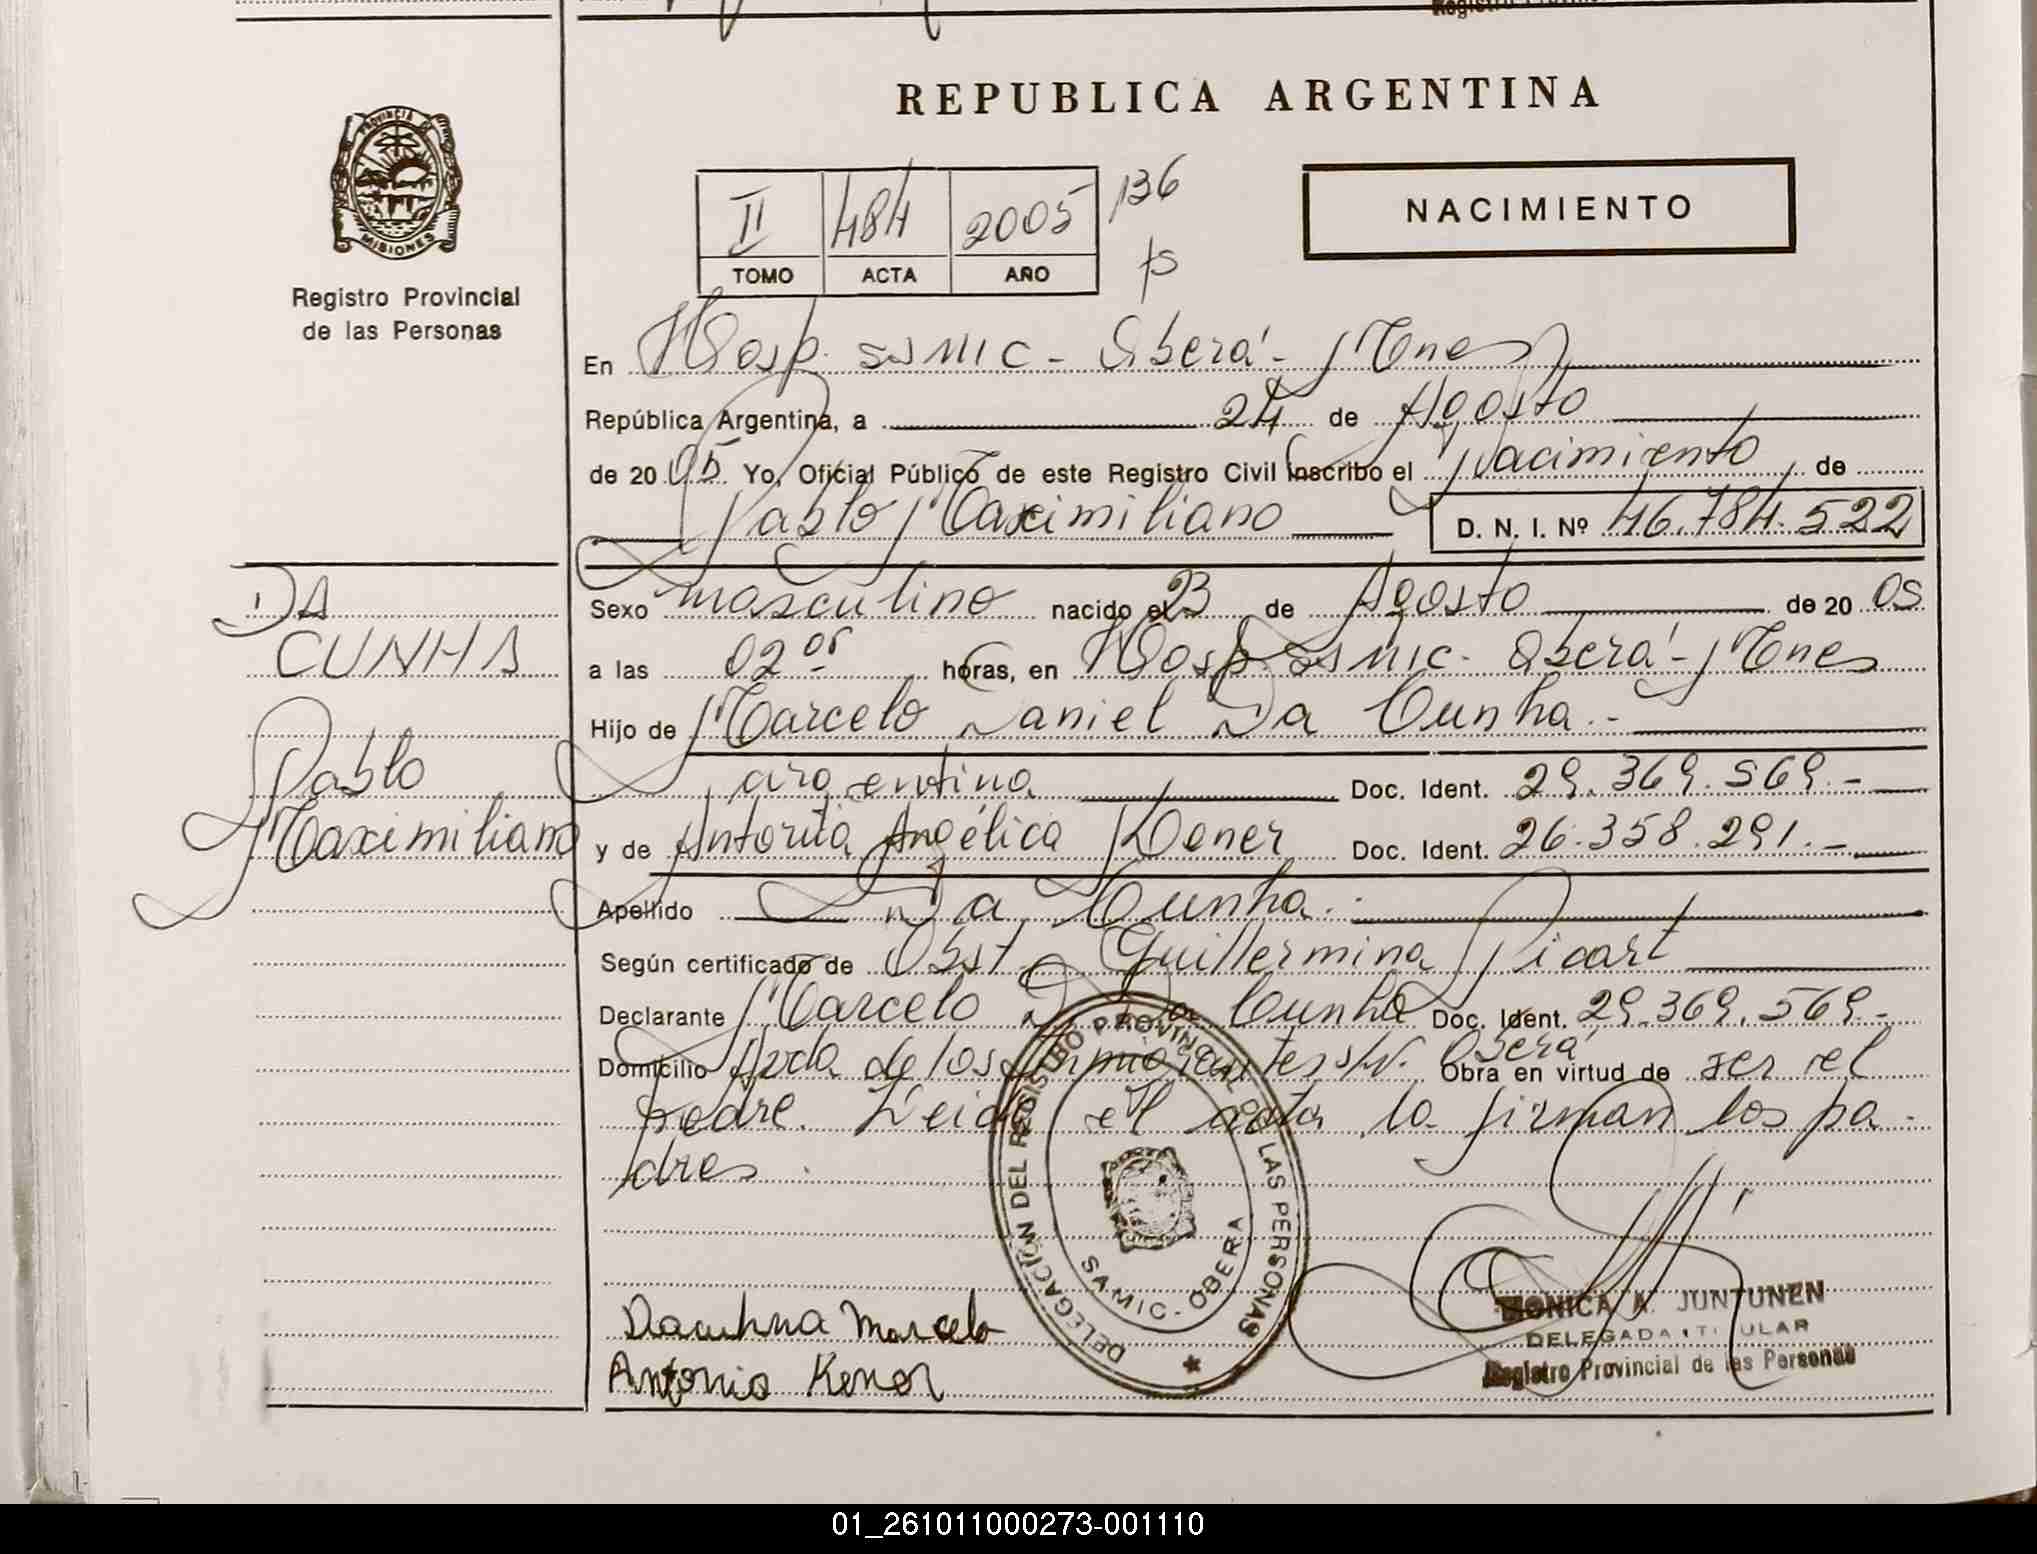 REPUBLICA ARGENTINA
PROVINCIA DE
MISIONES
Registro Provincial
de las Personas
II 484 2005 136
TOMO ACTA AÑO fs
NACIMIENTO
En Hosp. SAMIC - Oberá - Mnes
República Argentina, a 24 de Agosto
de 20 05 Yo, Oficial Público de este Registro Civil Inscribo el Nacimiento de
Pablo Maximiliano D. N. I. Nº 46.784.522
DA
CUNHA
Pablo
Maximiliano
Sexo masculino nacido el 23 de Agosto de 20 05
a las 02 05 horas, en Hosp. SAMIC - Oberá - Mnes
Hijo de Marcelo Daniel Da Cunha.-
argentino Doc. Ident. 29.369.569.-
y de Antonia Angélica Kener Doc. Ident. 26.358.291.-
Apellido Da Cunha.-
Según certificado de Obst. Guillermina Picart
Declarante Marcelo D. Da Cunha Doc. Ident. 29.369.569-
Domicilio Avda de los Inmigrantes s/N. Oberá Obra en virtud de ser el
padre. Leida el acta la firman los pa-
dres.
DELEGACIÓN DEL REGISTRO PROVINCIAL DE LAS PERSONAS
SAMIC - OBERA
Dacuhna Marcelo
Antonia Kener
MONICA A. JUNTUNEN
DELEGADA TITULAR
Registro Provincial de las Personas
01_261011000273-001110